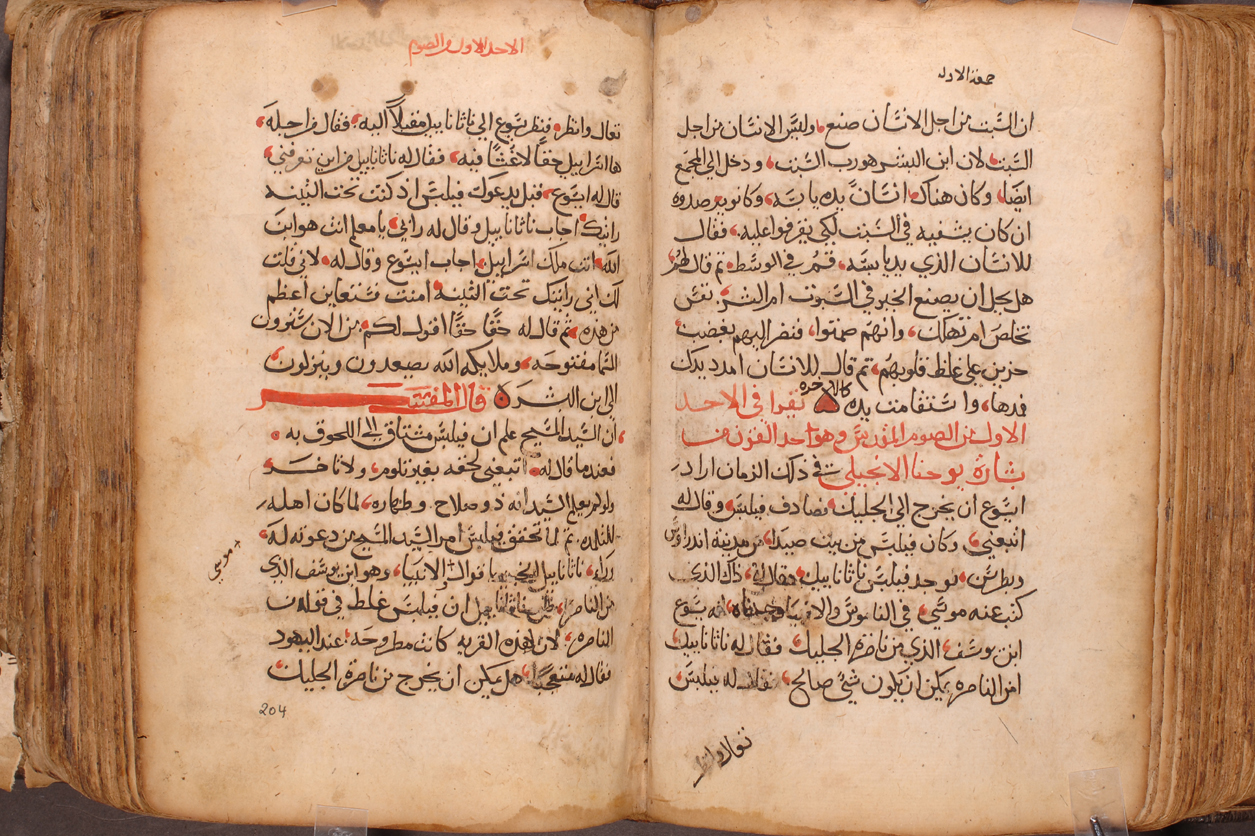 جمعة الاوله
ان السبت من اجل الانسان صنع، وليس الانسان من اجل
السبت، لان ابن البشر هو رب السبت، ودخل الي المجمع
ايضا، وكان هناك انسانً يده يابسه، وكانو يرصدوه
ان كان يشفيه في السبت لكي يقرفوا عليه، فقال
للانسان الذي يده يابسه، قم في الوسط، ثم قال لهم
هل يحل ان يصنع الخير في السبوت ام الشر، نفس
تخلص ام تهلك، وانهم صمتوا، فنظر اليهم بغضب
حزين علي غلظ قلوبهم، ثم قال للانسان امدد يدك
فمدها، واستقامت يده كالاخره نقرا في الاحد
الاول من الصوم المقدس وهو احد القرن من
بشارة يوحنا الانجيلي في ذلك الزمان اراد
ايسوع ان يخرج الي الجليل، فصادف فيلبس وقال له
اتبعني، وكان فيلبس من بيت صيدا، من مدينة اندراوس
وبطرس، يوجد فيلبس ناثاناييل، فقال له، ذاك الذي
كتب عنه موسي، في الناموس والانبيا وجدناه، انه يسوع
ابن يوسف، الذي من ناصرة الجليل، فقال له ناثاناييل،
امن الناصره يمكن ان يكون شي صالح، فقال له فيلبس،
تعال وانظر
الاحد الاول من الصوم
تعال وانظر، فنظر يسوع الي ناثاناييل مقبلاً اليه، فقال من اجله،
ها اسراييل حقاً لا غش فيه، فقال له ناثاناييل من اين تعرفني،
قال له ايسوع، قبل يدعوك فيلبس اذ كنت تحت التينه
رايتك، اجاب ناثاناييل وقال له رابي، يا معلم انت هو ابن
الله، انت ملك اسراييل، اجاب ايسوع وقال له، لاني قلت
لك اني رايتك تحت التينه امنت، فستعاين اعظم
من هذه، ثم قال له حقاً حقاً اقول لكم، من الان ترون
السما مفتوحه، وملايكه الله يصعدون وينزلون
الي ابن البشر قال المفسر
ان السيد المسيح علم ان فيلبس مشتاق الي اللحوق به
فعندما قال له، اتبعني لحقه بغير تلوم، ولا تاخر
ولو لم يعلم السيد انه ذو صلاح وطهاره، لما كان اهله
للتلمده، ثم لما تحقق فيلبس امر السيد المسيح من دعوته له،
وراي، ناثاناييل اقوال الانبيا، وهو ابن يوسف الذي
من الناصره، ان فيلبس غلط في قوله من
الناصره، لان هذه القريه كانت مطروحه، عند اليهود
فقال له متعجباً، هل يمكن ان يخرج من ناصرة الجليل
موسي
204